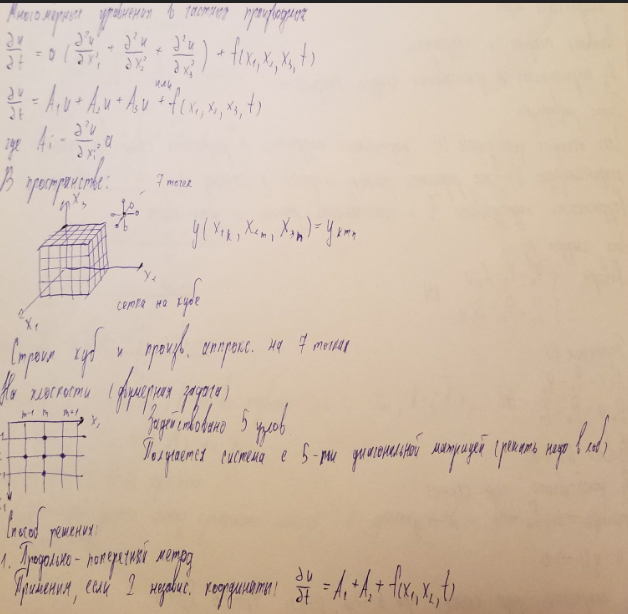 Многомерные уравнения в частных производных
∂u/∂t = a ( ∂²u/∂x₁² + ∂²u/∂x₂² + ∂²u/∂x₃² ) + f(x₁, x₂, x₃, t)
или
∂u/∂t = A₁u + A₂u + A₃u + f(x₁, x₂, x₃, t)
где Ai - ∂²u/∂xi² a
В пространстве: 7 точек
x₃
y(x₁k, x₂m, x₃n) = ykmn
x₂
сетка на кубе
x₁
Строим куб и произв. аппрокс. на 7 точках
На плоскости (двумерная задача)
m-1 m m+1 x₁
Задействовано 5 узлов
Получается система с 5-ти диагональной матрицей (решать надо в лоб)
Способ решения:
1. Продольно-поперечный метод
Применим, если 2 независ. координаты: ∂u/∂t = A₁ + A₂ + f(x₁, x₂, t)